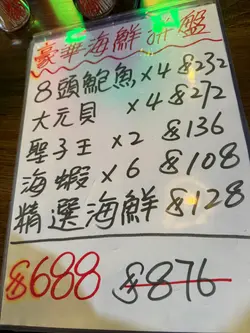 豪華海鮮拼盤
8頭鮑魚×4 $232
大元貝 ×4 $272
聖子王 ×2 $136
海蝦 ×6 $108
精選海鮮 $128
$688 $876